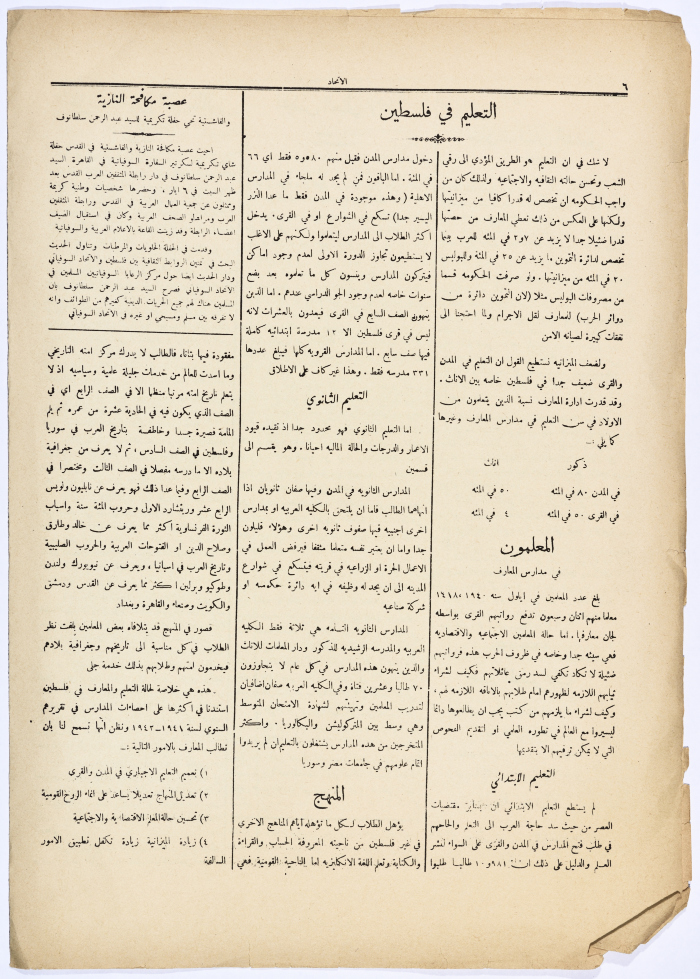 ٦
الاتحاد
التعليم في فلسطين
لا شك في ان التعليم هو الطريق المؤدي الى رقي
الشعب وتحسن حالته الثقافيه والاجتماعيه ولذلك كان من
واجب الحكومه ان تخصص له قدرا كافيا من ميزانيتها
ولكنها على العكس من ذلك نعطي المعارف من حصتها
قدرا ضئيلا جدا لا يزيد عن ٧و٣ في المئه للعرب بينما
تخصص لدائرة التموين ما يزيد عن ٣٥ في المئه وللبوليس
٣٠ في المئه من ميزانيتها . ولو صرفت الحكومه قسما
من مصروفات البوليس مثلا (لان التموين دائرة من
دوائر الحرب) للمعارف لقل الاجرام ولما احتجنا الى
نفقات كبيرة لصيانه الامن
ولضعف الميزانيه نستطيع القول ان التعليم في المدن
والقرى ضعيف جدا في فلسطين خاصه بين الاناث .
وقد قدرت ادارة المعارف نسبة الذين يتعلمون من
الاولاد في سن التعليم في مدارس المعارف وغيرها
كما يلي :ـ
ذكور اناث
في المدن ٨٠ في المئه ٥٠ في المئه
في القرى ٥٠ في المئه ٤ في المئه
المعلمون
في مدارس المعارف
بلغ عدد المعلمين في ايلول سنه ١٩٤٠ ١٦١٨
معلما منهم اثنان وسبعون تدفع رواتبهم القرى بواسطه
لجان معارفها . اما حالة المعلمين الاجتماعيه والاقتصاديه
فهي سيئه جدا وخاصه في ظروف الحرب هذه فرواتبهم
ضئيلة لا تكاد تكفي لسد رمق عائلاتهم فكيف لشراء
ثيابهم اللازمه لظهورهم امام طلابهم بالاناقه اللازمه لهم ،
وكيف لشراء ما يلزمهم من كتب يجب ان يطالعوها دائما
ليسيروا مع العالم في تطوره العلمي او لتقديم الفحوص
التي لا يمكن ترفيهم الا بتقديمها
التعليم الابتدائي
لم يستطع التعليم الابتدائي ان يساير مقتضيات
العصر من حيث سد حاجة العرب الى التعلم والحاحهم
في طلب فتح المدارس في المدن والقرى على السواء لنشر
العلم والدليل على ذلك ان ٩٨١و١٠ طالبا طلبوا
دخول مدارس المدن فقبل منهم ٥٥٨٠ فقط اي ٦٦
في المئة . اما الباقون فمن لم يجد له ملجاء في المدارس
الاهلية (وهذه موجودة في المدن فقط ما عدا النزر
اليسير جدا) تسكع في الشوارع او في القرى . يدخل
أكثر الطلاب الى المدارس ليتعلموا ولكنهم على الاغلب
لا يستطيعون تجاوز الدورة الاولى لعدم وجود اماكن
فيتركون المدارس وينسون كل ما تعلموه بعد بضع
سنوات خاصه لعدم وجود الجو الدراسي عندهم . اما الذين
ينهون الصف السابع في القرى فيعدون بالعشرات لانه
ليس في قرى فلسطين الا ١٢ مدرسة ابتدائيه كاملة
فيها صف سابع . اما المدارس القرويه كلها فيبلغ عددها
٣٣٤ مدرسه فقط . وهذا غير كاف على الاطلاق
التعليم الثانوي
اما التعليم الثانوي فهو محدود جدا اذ تقيده قيود
الاعمار والدرجات والحالة الماليه احيانا . وهو يقسم الى
قسمين
المدارس الثانويه في المدن وفيها صفان ثانويان اذا
انهاهما الطالب فاما ان يلتحق بالكليه العربيه او بمدارس
اخرى اجنبيه فيها صفوف ثانويه اخرى وهؤلاء قليلون
جدا واما ان يعتبر نفسه متعلما مثقفا فيرفض العمل في
الاعمال الحرة او الزراعي في قريته فيتسكع في شوارع
المدينه الى ان يجد له وظيفه في ايه دائرة حكوميه او
شركة صناعيه
المدارس الثانويه التامه هي ثلاثة فقط الكليه
العربيه والمدرسه الرشيديه للذكور ودار المعلمات للاناث
والذين ينهون هذه المدارس في كل عام لا يتجاوزون
٧٠ طالبا وعشرين فتاة وفي الكليه العربيه صفان اضافيان
لتدريب المعلمين وتهيئتهم لشهادة الامتحان المتوسط
وهي وسط بين المتركوليشن والبكالوريا . واكثر
المتخرجين من هذه المدارس يشتغلون بالتعليم ان لم يريدوا
اتمام علومهم في جامعات مصر وسوريا
المنهج
يؤهل الطلاب لسكل ما تؤهله أياهم المناهج الاخرى
في غير فلسطين من ناحيته المعروفة الحساب والقراءة
والكتابة وتعلم اللغة الانكليزيه اما الناحية القومية فهي
عصبة مكافحة النازية
والفاشستية تحي حفلة تكريمية للسيد عبد الرحمن سلطانوف
احيت عصبة مكافحة النازية والفاشستية في القدس حفلة
شاي تكريمية لسكرتير السفارة السوفياتية في القاهرة السيد
عبد الرحمن سلطانوف في دار رابطة المثقفين العرب القدس بعد
ظهر السبت في ٦ ايار ، وحضرها شخصيات وطنية كريمة
وممثلون عن جمعية العمال العربية في القدس ورابطة المثقفين
العرب ومراسلو الصحف العربية وكان في استقبال الضيف
اعضاء الرابطة وقد زينت القاعة بالاعلام العربية والسوفياتية
وقدمت في الحفلة الحلويات والمرطبات وتناول الحديث
البحث في تمتين الروابط الثقافية بين فلسطين والاتحاد السوفياتي
ودار الحديث ايضا حول مركز الرعايا السوفياتيين المسلمين في
الاتحاد السوفياتي فصرح السيد عبد الرحمن سلطانوف بان
المسلمين هناك لهم جميع الحريات الدينية كغيرهم من الطوائف وانه
لا تفرقه بين مسلم ومسيحي او غيره في الاتحاد السوفياتي
مفقودة فيها بتاتا . فالطالب لا يدرك مركز امته التاريخي
وما اسدت للعالم من خدمات جليلة علمية وسياسيه اذ لا
يتعلم تاريخ امته مرتبا منظما الا في الصف الرابع اي في
الصف الذي يكون فيه في الحادية عشرة من عمره ثم يلم
المامة قصيرة جدا وخاطفة بتاريخ العرب في سوريا
وفلسطين في الصف السادس ، ثم لا يعرف من جغرافية
بلاده الا ما درسه مفصلا في الصف الثالث ومختصرا في
الصف الرابع وفيما عدا ذلك فهو يعرف عن نابليون ولويس
الرابع عشر وريتشارد الاول وحروب المئة سنة واسباب
الثورة الفرنساوية اكثر مما يعرف عن خالد وطارق
وصلاح الدين او الفتوحات العربية والحروب الصليبية
وتاريخ العرب في اسبانيا ، ويعرف عن نيويورك ولندن
وطوكيو وبرلين اكثر مما يعرف عن القدس ودمشق
والكويت وصنعاء والقاهرة وبغداد
قصور في المنهج قد يتلافاه بعض المعلمين بلفت نظر
الطلاب في كل مناسبة الى تاريخهم وجغرافية بلادهم
فيخدمون امتهم وطلابهم بذلك خدمة جلى
هذه هي خلاصة لحالة التعليم والمعارف في فلسطين
استندنا في اكثرها على احصاءات المدارس في تقريرهم
السنوي لسنة ١٩٤١-١٩٤٢ ونظن انها تسمح لنا بان
نطالب المعارف بالامور التالية :ـ
١) تعميم التعليم الاجباري في المدن والقرى
٢) تعديل المنهاج تعديلا يساعد على انماء الروح القومية
٣) تحسين حالة المعلم الاقتصادية والاجتماعية
٤) زيادة الميزانية زيادة تكفل تطبيق الامور
السالفة